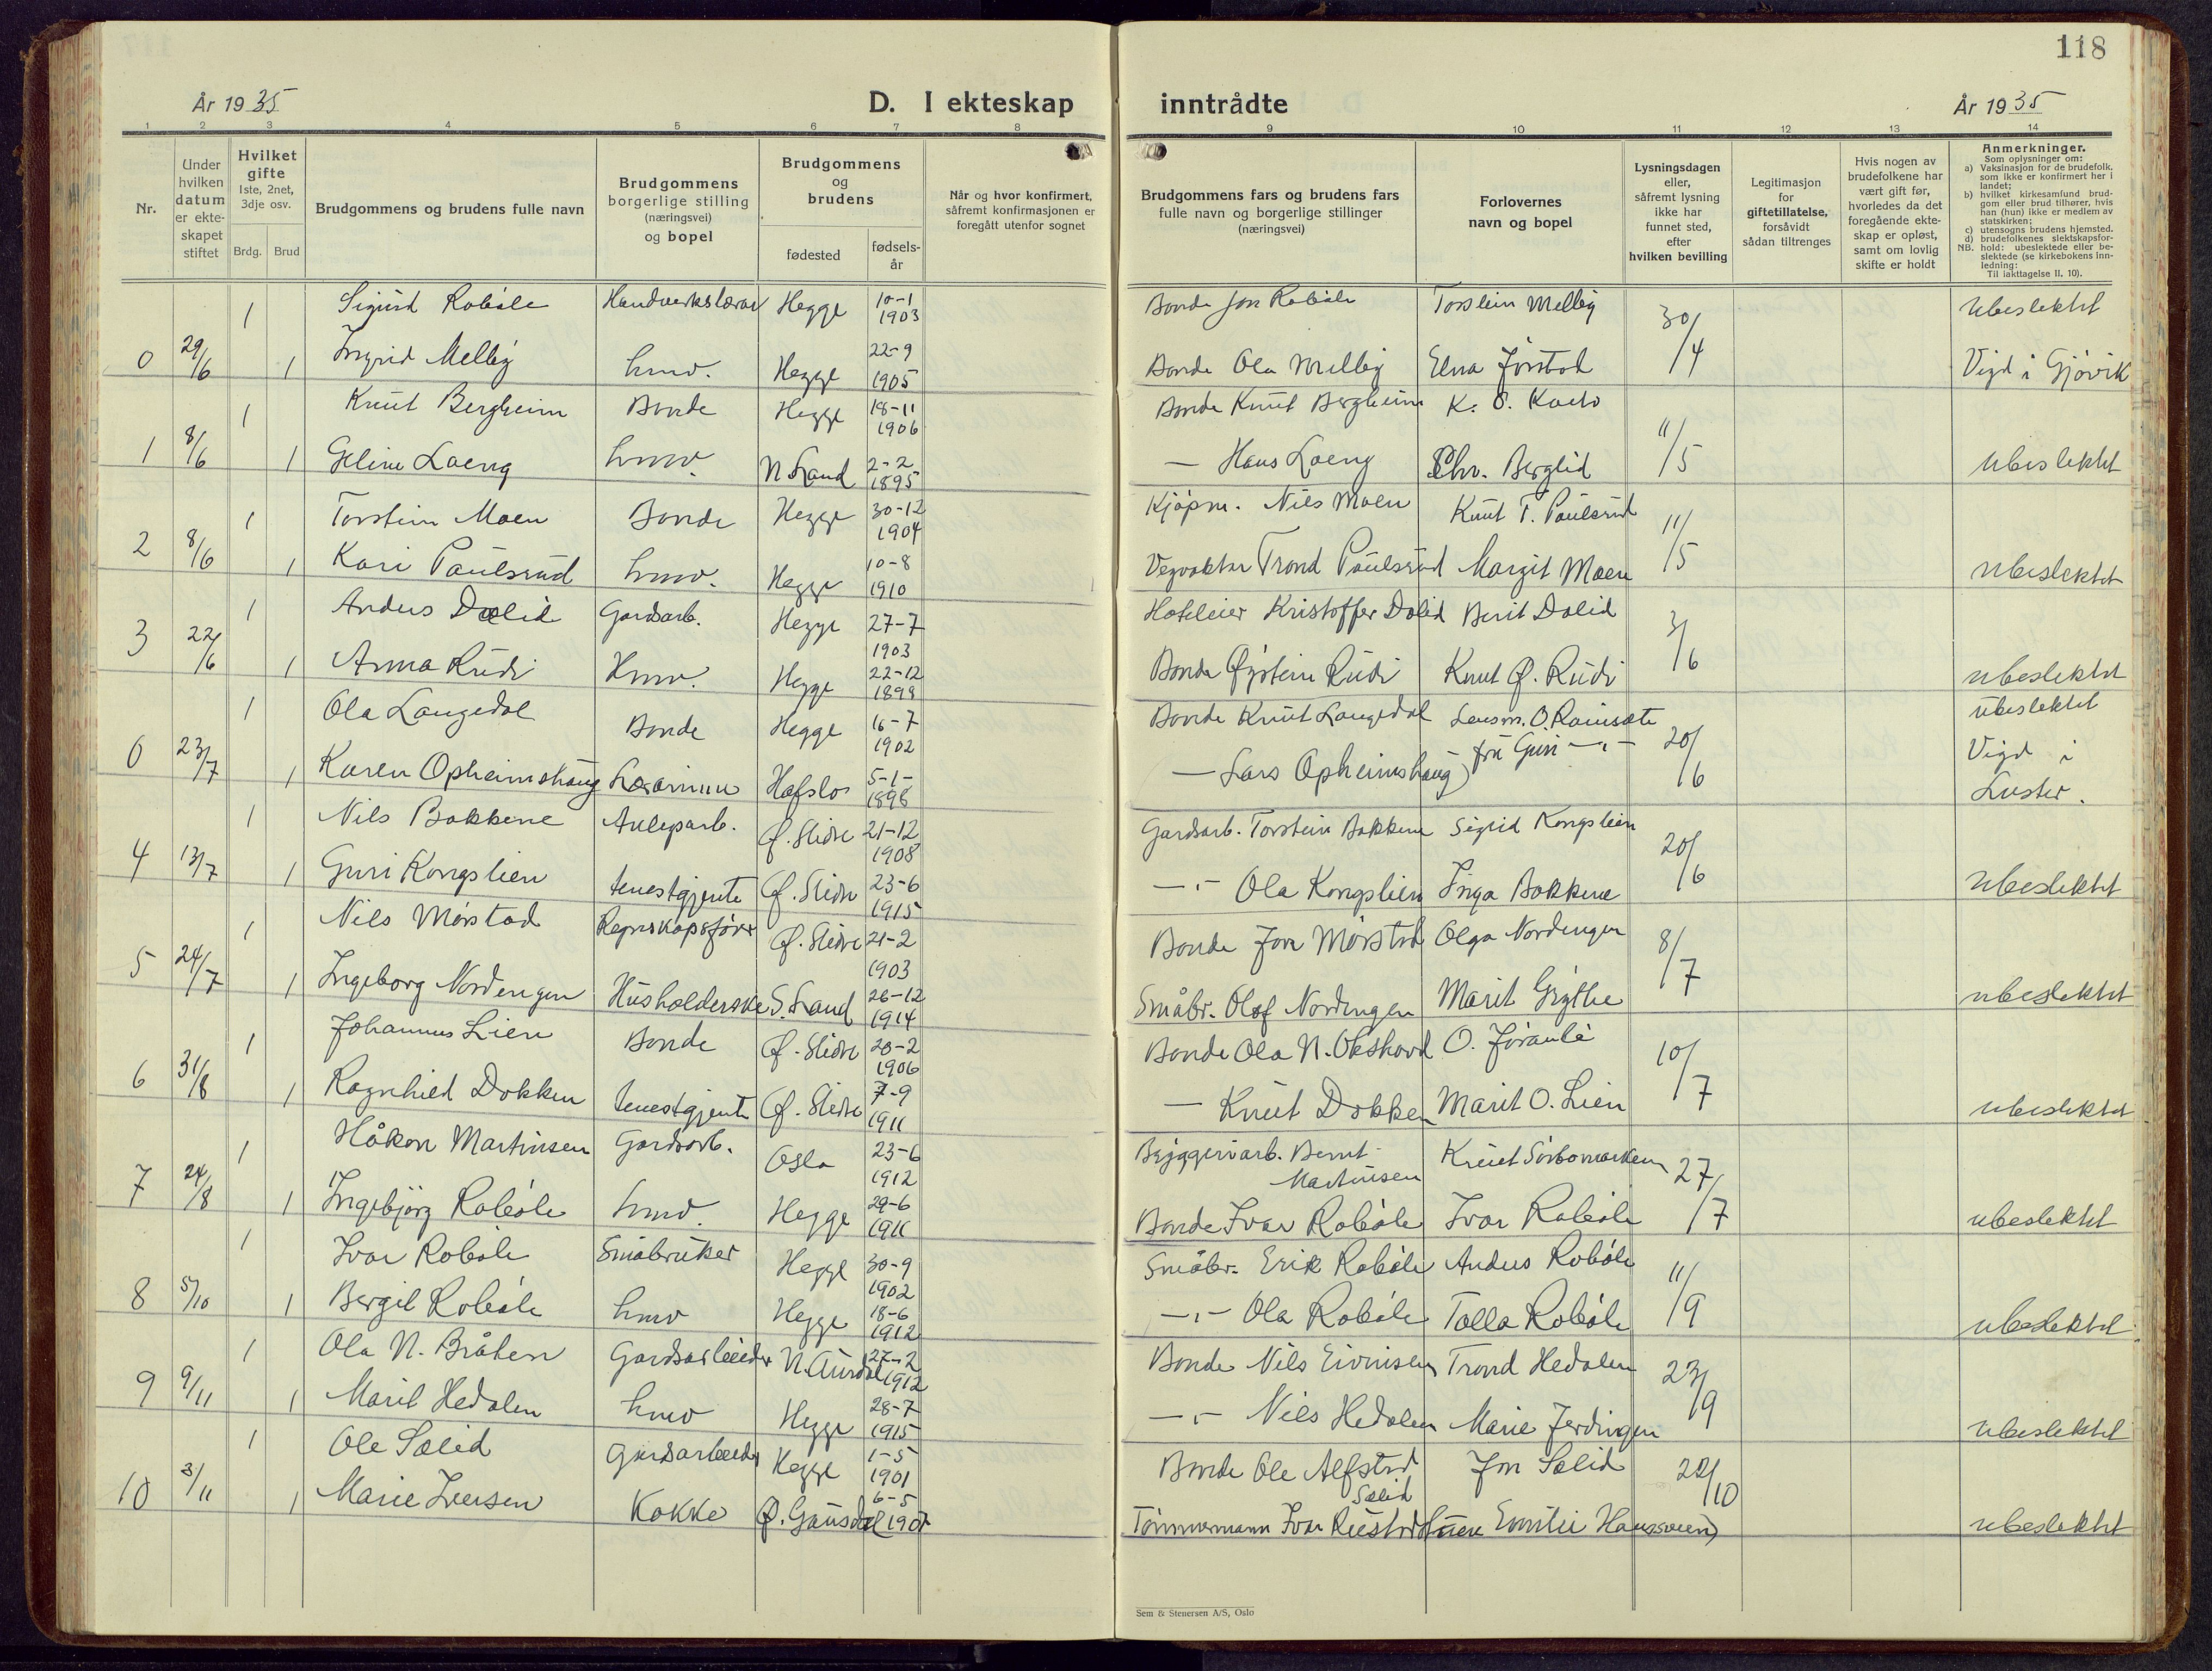 118
År 1935
D. I ekteskap inntrådte
År 1935
1 2 3 4 5 6 7 8 9 10 11 12 13 14
Nr.
Under hvilken datum er ekteskapet stiftet
Hvilket gifte
1ste, 2net, 3dje osv.
Brdg. Brud
Brudgommens og brudens fulle navn
Brudgommens borgerlige stilling (næringsvei) og bopel
Brudgommens og brudens
fødested
fødselsår
Når og hvor konfirmert, såfremt konfirmasjonen er foregått utenfor sognet
Brudgommens fars og brudens fars fulle navn og borgerlige stillinger (næringsvei)
Forlovernes navn og bopel
Lysningsdagen eller, såfremt lysning ikke har funnet sted, efter hvilken bevilling
Legitimasjon for giftetillatelse, forsåvidt sådan tiltrenges
Hvis nogen av brudefolkene har vært gift før, hvorledes da det foregående ekteskap er opløst, samt om lovlig skifte er holdt
Anmerkninger.
Som oplysninger om:
a) Vaksinasjon for de brudefolk, som ikke er konfirmert her i landet;
b) hvilket kirkesamfund brudgom eller brud tilhører, hvis han (hun) ikke er medlem av statskirken;
c) utensogns brudens hjemsted.
d) brudefolkenes slektskapsforhold: ubeslektede eller beslektede (se kirkebokens innledning:
NB. Til iakttagelse II. 10).
1 Sigurd Robøle Handverkslærar Hegge 10-1 1903 Bonde Jon Robøle Torstein Melby 30/4 ubeslektet
0 29/6 1 Ingrid Melby hmv. Hegge 22-9 1905 Bonde Ola Melby Elna Jørstad Vigd i Gjøvik
1 Knut Bergheim Bonde Hegge 18-11 1906 Bonde Knut Bergheim 11/5
1 8/6 1 Geline Loeng hmv. N. Land 2-2 1895 — Hans Loeng Chr. Berglid ubeslektet
1 Torstein Moen Bonde Hegge 30-12 1904 Kjøpm. Nils Moen Knut T. Paulsrud 11/5
2 8/6 1 Kari Paulsrud hmv. Hegge 10-8 1910 Vegvaktar Trond Paulsrud Margit Moen ubeslektet
1 Anders Dalid Gardsarb. Hegge 27-7 1903 Hoteleier Kristoffer Dalid Berit Dalid 3/6
3 22/6 1 Anna Rudi Hmv. Hegge 22-12 1898 Bonde Øystein Rudi Knut Ø. Rudi ubeslektet
1 Ola Langedal Bonde Hegge 16-7 1902 Bonde Knut Langedal Lensm. O. Rauisæte 20/6 ubeslektet
0 23/7 1 Karen Opheimshaug Lærarinne Hafslo 5-1- 1898 — Lars Opheimshaug fru Guri —"— Vigd i Luster.
1 Nils Bakkene Anleparb. Ø. Slidre 21-12 1908 Gardsarb. Torstein Bakkene Sigrid Kongslien 20/6
4 13/7 1 Guri Kongslien tenestgjente Ø. Slidre 23-6 1915 —"— Ola Kongslien Inga Bakkene ubeslektet
1 Nils Mørstad Regnskapsfører Ø. Slidre 21-2 1903 Bonde Jon Mørstad Olga Nordengen 8/7
5 24/7 1 Ingeborg Nordengen Husholderske S. Land 26-12 1914 Småbr. Olof Nordengen Marit Grythe ubeslektet
1 Johannes Lien Bonde Ø. Slidre 20-2 1906 Bonde Ola N. Okshovd O. Joranli 10/7
6 31/8 1 Ragnhild Dokken tenestgjente Ø. Slidre 7-9 1911 — Knut Dokken Marit O. Lien ubeslektet
1 Håkon Martinsen Gardsarb. Oslo 23-6 1912 Bryggeriarb. Bernt Martinsen Knut Sørbomarken 27/7
7 24/8 1 Ingebjørg Robøle hmv. Hegge 29-6 1911 Bonde Ivar Robøle Ivar Robøle ubeslektet
1 Ivar Robøle Småbruker Hegge 30-9 1902 Småbr. Erik Robøle Anders Robøle 11/9
8 5/10 1 Bergit Robøle hmv Hegge 18-6 1912 —"— Ola Robøle Tolla Robøle ubeslektet
1 Ola N. Bråten Gardsarbeider N. Aurdal 27-2 1912 Bonde Nils Eivinsen Trond Hedalen 23/9
9 9/11 1 Marit Hedalen hmv Hegge 28-7 1915 —"— Nils Hedalen Marie Jerdingen ubeslektet
1 Ole Sælid Gardsarbeider Hegge 1-5 1901 Bonde Ole Alfstad Sælid Jon Sælid 22/10
10 3/11 1 Marie Iversen Kokke Ø. Gausdal 6-5 Tømmermann Ivar Emilie Hansveen ubeslektet
Sem & Stenersen A/S, Oslo